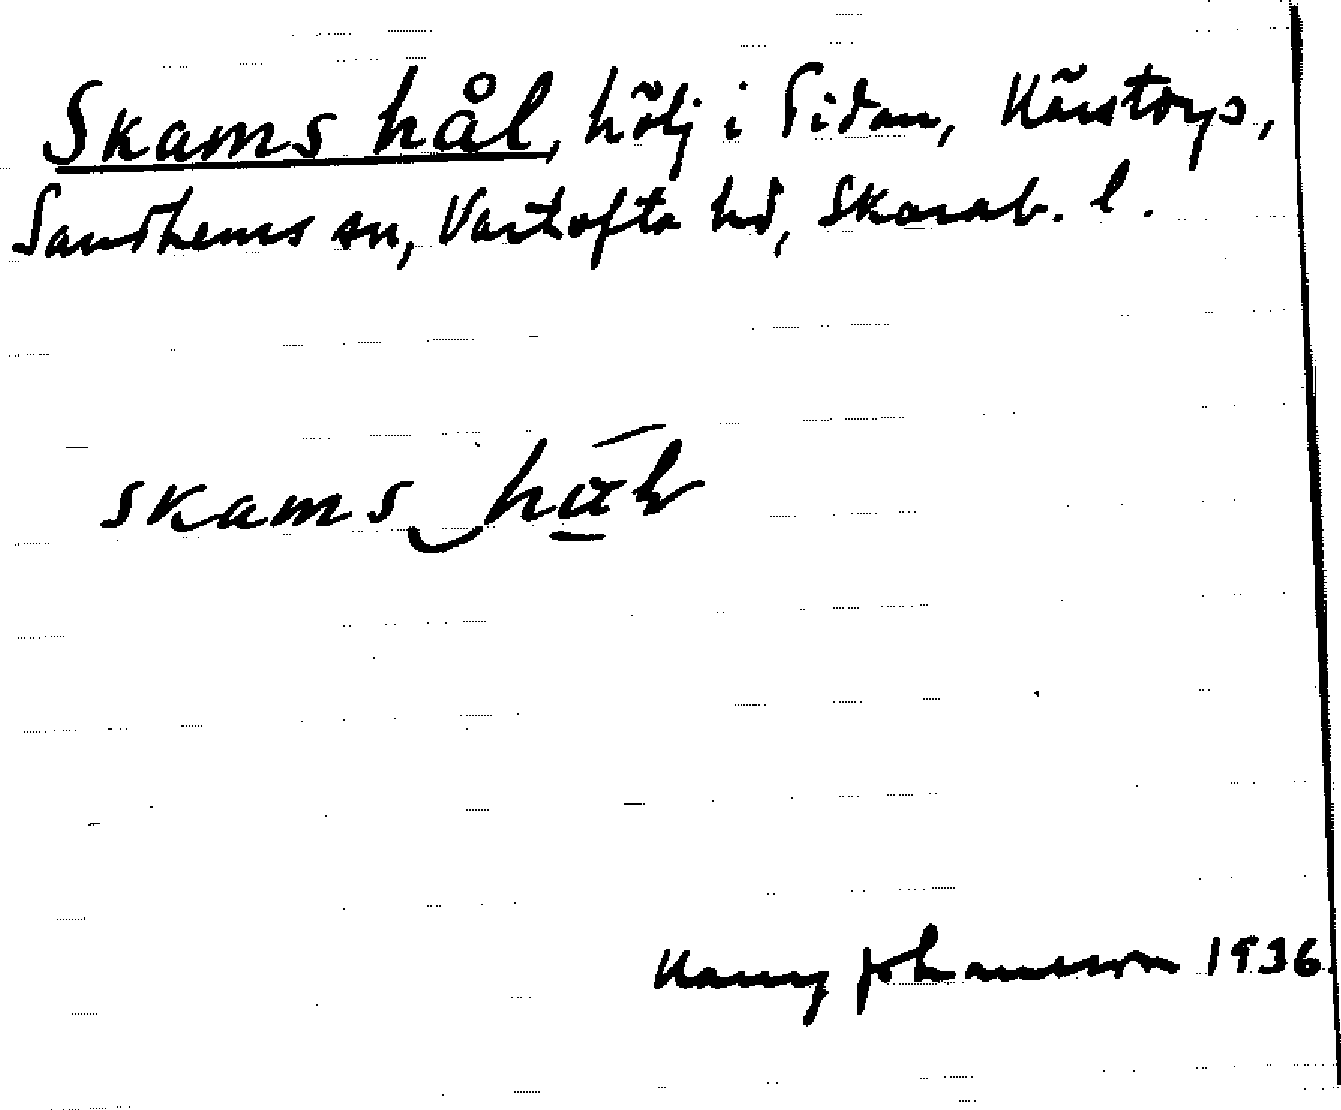 Skams hål, hölj i Tidan, Kärstorp,
Sandhems sn, Vartofta hd, Skarab. l.
skams hål
Johansson 1936